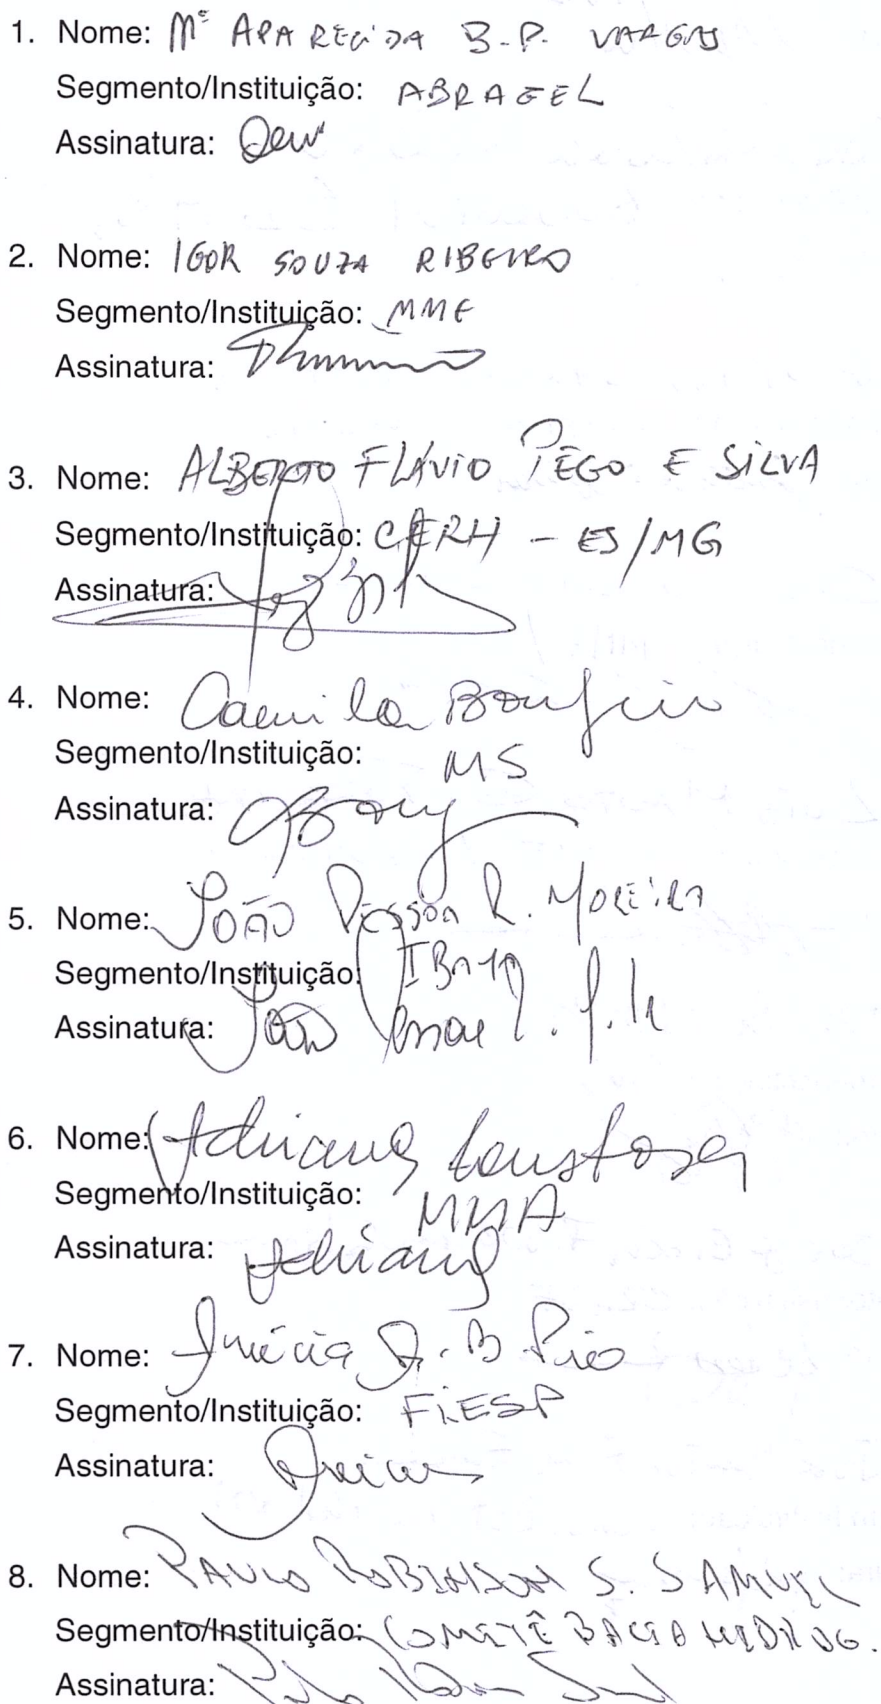 1. Nome: Mª APARECIDA B.P. VARGAS
Segmento/Instituição: ABRAGEL
Assinatura:
2. Nome: IGOR SOUZA RIBEIRO
Segmento/Instituição: MME
Assinatura:
3. Nome: ALBERTO FLÁVIO PÊGO E SILVA
Segmento/Instituição: CERH - ES/MG
Assinatura:
4. Nome: Camila Bonfim
Segmento/Instituição: MS
Assinatura:
5. Nome: JOÃO Pessoa R. MOREIRA
Segmento/Instituição: IBAMA
Assinatura: João Pessoa R.
6. Nome: Adriana Lustosa
Segmento/Instituição: MMA
Assinatura: Adriana
7. Nome: Anícia A. B Pio
Segmento/Instituição: FIESP
Assinatura:
8. Nome: PAULO ROBINSON S. SAMUEL
Segmento/Instituição: COMITÊ BACIA HIDROG.
Assinatura: